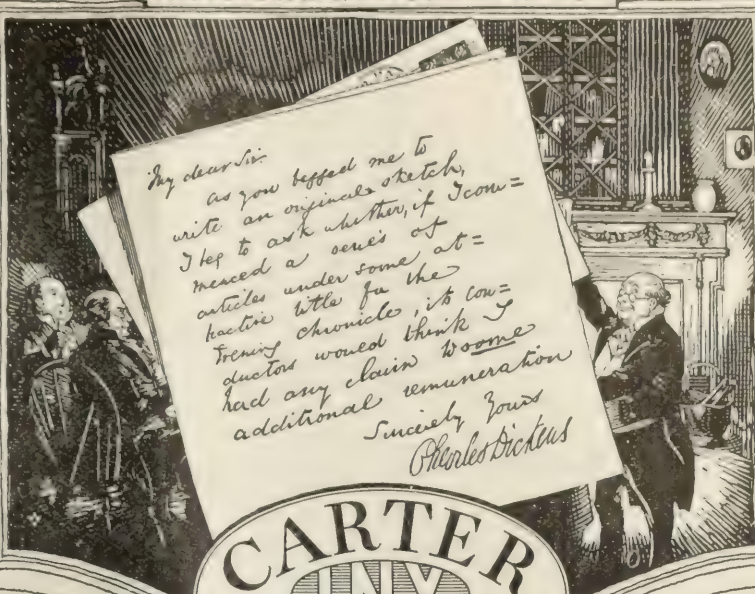 My dear Sir.
as you begged me to
write an original sketch,
I beg to ask whether, if I com=
menced a series of
articles under some at=
tractive title for the
Evening Chronicle, its con=
ductors would think I
had any claim to some
additional remuneration
Sincerely Yours
Charles Dickens
CARTER
INX